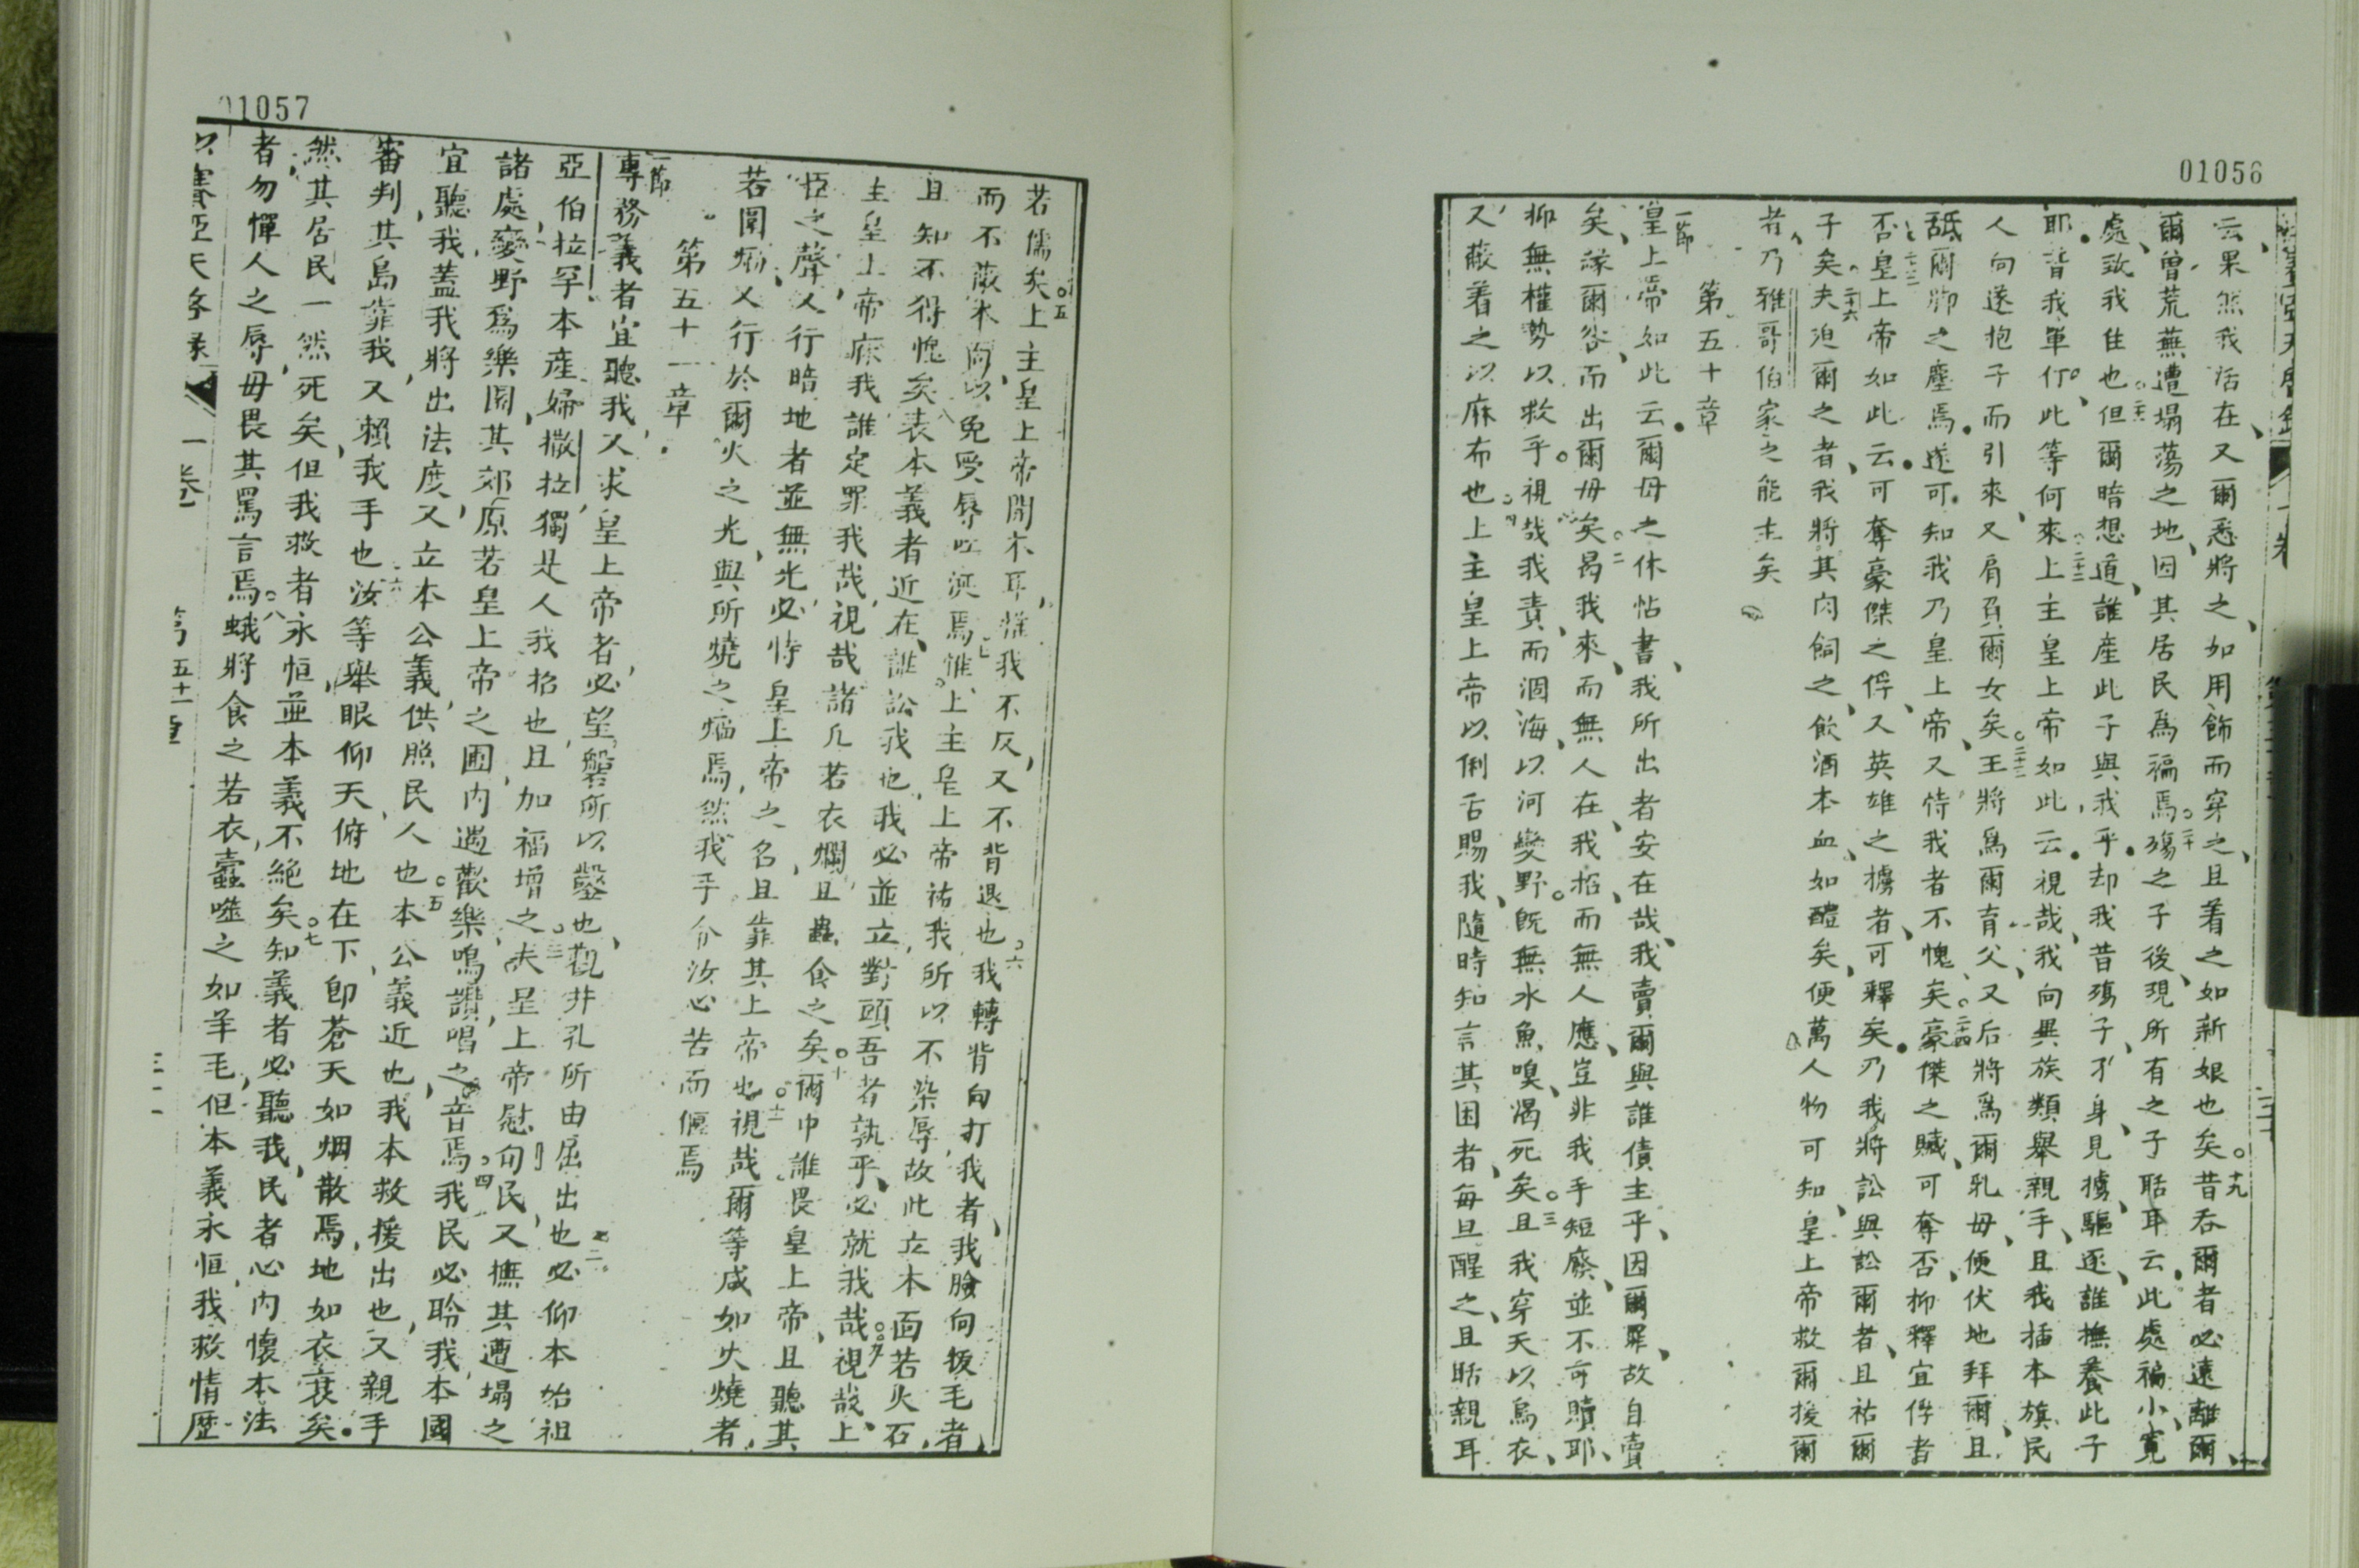 01056
云果然我活在又爾悉將之如用飾而穿之且着之如新娘也矣○十九昔吞爾者必遠離爾
爾曾荒蕪遭塌蕩之地因其居民爲褊焉○二十殤之子後現所有之子聒耳云此處褊小寬
處致我住也但爾暗想道誰産此子與我乎却我昔殤子孑身見擄驅逐誰撫養此子
耶皆我單仃此等何來○二十二上主皇上帝如此云視哉我向異族類舉親手且我插本旗民
人向遂抱子而引來又肩負爾女矣○二十三王將爲爾育父又后將爲爾乳母便伏地拜爾且
舐爾脚之塵焉遂可知我乃皇上帝又恃我者不愧矣○二十四豪傑之贓可奪否抑釋宜俘者
否皇上帝如此云可奪豪傑之俘又英雄之擄者可釋矣乃我將訟與訟爾者且祐爾
子矣○二十六夫迫爾之者我將其肉飼之飲酒本血如醴矣便萬人物可知皇上帝救爾援爾
者乃雅哥伯家之能主矣
第五十章
一節
皇上帝如此云爾母之休帖書我所出者安在哉我賣爾與誰債主乎因爾罪故自賣
矣緣爾咎而出爾母矣○二曷我來而無人在我招而無人應豈非我手短廢並不可贖耶
抑無權勢以救乎視哉我責而涸海以河變野旣無水魚嗅渴死矣○三且我穿天以烏衣
又蔽着之以麻布也○四上主皇上帝以俐舌賜我隨時知言其困者每旦醒之且聒親耳
01057
若儒矣○五上主皇上帝開本耳惟我不反又不背退也○六我轉背向打我者我臉向扳毛者
而不蔽本面以免受辱吐涎焉○七惟上主皇上帝祐我所以不染辱故此立本面若火石
且知不得愧矣○八表本義者近在誰訟我也我必並立對頭吾者孰乎必就我哉○九視哉上
主皇上帝庥我誰定罪我哉視哉諸凡若衣爛且蟲食之矣○十爾中誰畏皇上帝且聽其
臣之聲又行暗地者並無光必恃皇上帝之名且靠其上帝也○十一視哉爾等咸如火燒者
若圍煏又行於爾火之光與所燒之煏焉然我手分汝必苦而偃焉
第五十一章
一節
專務義者宜聽我又求皇上帝者必望磐所以鑿也觀井孔所由屈出也○二必仰本始祖
亞伯拉罕本產婦撒拉獨是人我招也且加福增之○三夫皇上帝慰句民又撫其遭塌之
諸處變野爲樂園其郊原若皇上帝之囿内遇歡樂鳴讚唱之音焉○四我民必聆我本國
宜聽我蓋我將出法度又立本公義供照民人也○五本公義近也我本救援出也又親手
審判其島靠我又賴我手也○六汝等舉眼仰天俯地在下卽蒼天如烟散焉地如衣衰矣
然其居民一然死矣但我救者永恒並本義不絕矣○七知義者必聽我民者心内懷本法
者勿憚人之辱毋畏其罵言焉○八蛾將食之若衣蠹噬之如羊毛但本義永恒我救情歷
以賽亞天啓錄 一卷 第五十一章 三十一